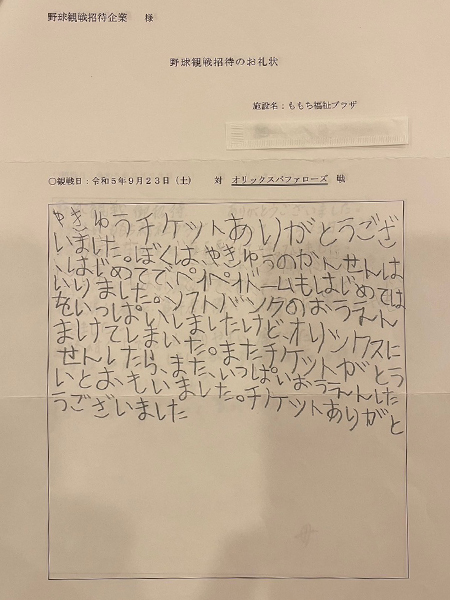 野球観戦招待企業 様
野球観戦招待のお礼状
施設名：ももち福祉プラザ
○観戦日：令和5年9月23日（土） 対 オリックスバファローズ 戦
やきゅうチケットありがとうござ
いました。ぼくは、やきゅうのかんせんは
はじめてで、ペイペイドームもはじめては
いりました。ソフトバンクのおうえん
をいっぱいしましたけど、オリックスに
まけてしまいた。またチケットがとう
せんしたら、また、いっぱいおうえんした
いとおもいました。チケットありがと
うございました